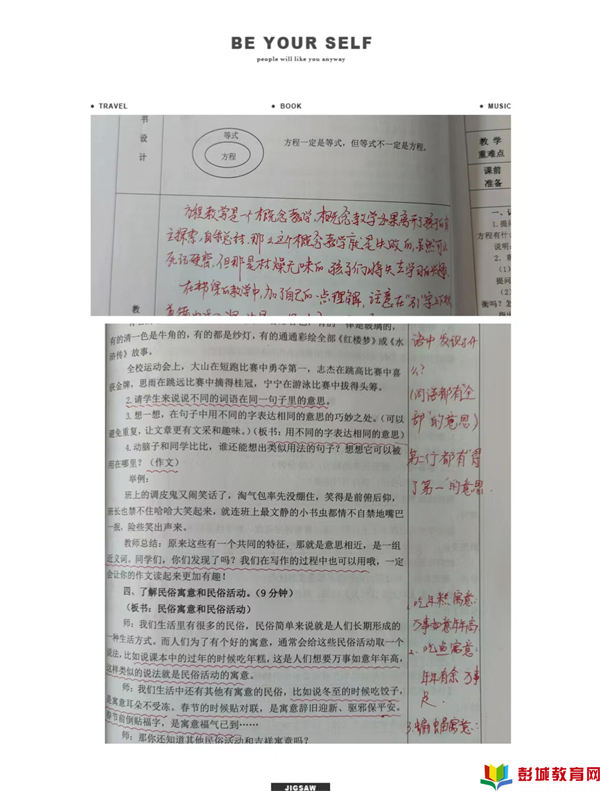 BE YOUR SELF
people will like you anyway
TRAVEL
BOOK
MUSIC
书
设
计
等式
方程
方程一定是等式，但等式不一定是方程。
教学
重难点
课前
准备
方程教学是一个概念教学，概念教学如果离开了孩子的自
主探索，自我总结，那么这个概念教学就是失败的，虽然可以
死记硬背，但那是枯燥无味的
教
1.提问
方程有什
说明
提问
衡吗？怎
有的清一色是牛角的，有的都是纱灯，有的通通彩绘全部《红楼梦》或《水
浒传》故事。
全校运动会上，大山在短跑比赛中勇夺第一，志杰在跳高比赛中喜
获金牌，思雨在跳远比赛中摘得桂冠，宁宁在游泳比赛中拔得头筹。
2.请学生来说说不同的词语在同一句子里的意思。
3.想一想，在句子中用不同的字表达相同的意思的巧妙之处。（可以
避免重复，让文章更有文采和趣味。）（板书：用不同的字表达相同的意思）
4.动脑子和同学比比，谁还能想出类似用法的句子？想想它可以被
用在哪里？（作文）
举例：
班上的调皮鬼又闹笑话了，淘气包率先没绷住，笑得是前俯后仰，
班长也禁不住哈哈大笑起来，就连班上最文静的小书虫都情不自禁地嘴巴
一抿，险些笑出声来。
教师总结：原来这些有一个共同的特征，那就是意思相近，是一组
近义词。同学们，你们发现了吗？我们在写作的过程中也可以用哦，一定
会让你的作文读起来更加有趣！
四、了解民俗寓意和民俗活动。（9分钟）
（板书：民俗和民俗活动）
师：我们生活里有很多的民俗，民俗简单来说就是人们长期形成的
一种生活方式。而人们为了有个好的寓意，通常会给这些民俗活动取一个
说法，比如说课本中的过年的时候吃年糕，这是人们想要万事如意年年高，
这样类似的说法就是民俗活动的寓意。
师：我们生活中还有其他有寓意的民俗，比如说冬至的时候吃饺子，
是寓意耳朵不受冻。春节的时候贴对联，是寓意辞旧迎新、驱邪保平安。
春节前倒贴福字，是寓意福气已到……
师：那你还知道其他民俗活动和吉祥寓意吗？
语中发现了什
么？
（词语都有"全
部"的意思）
第二行都有"得
了第一"的意思
1.吃年糕寓意：
万事如意年年高
2.吃鱼寓意：
年年有余
3.蝙蝠寓意：
彭城教育网
JIGSAW